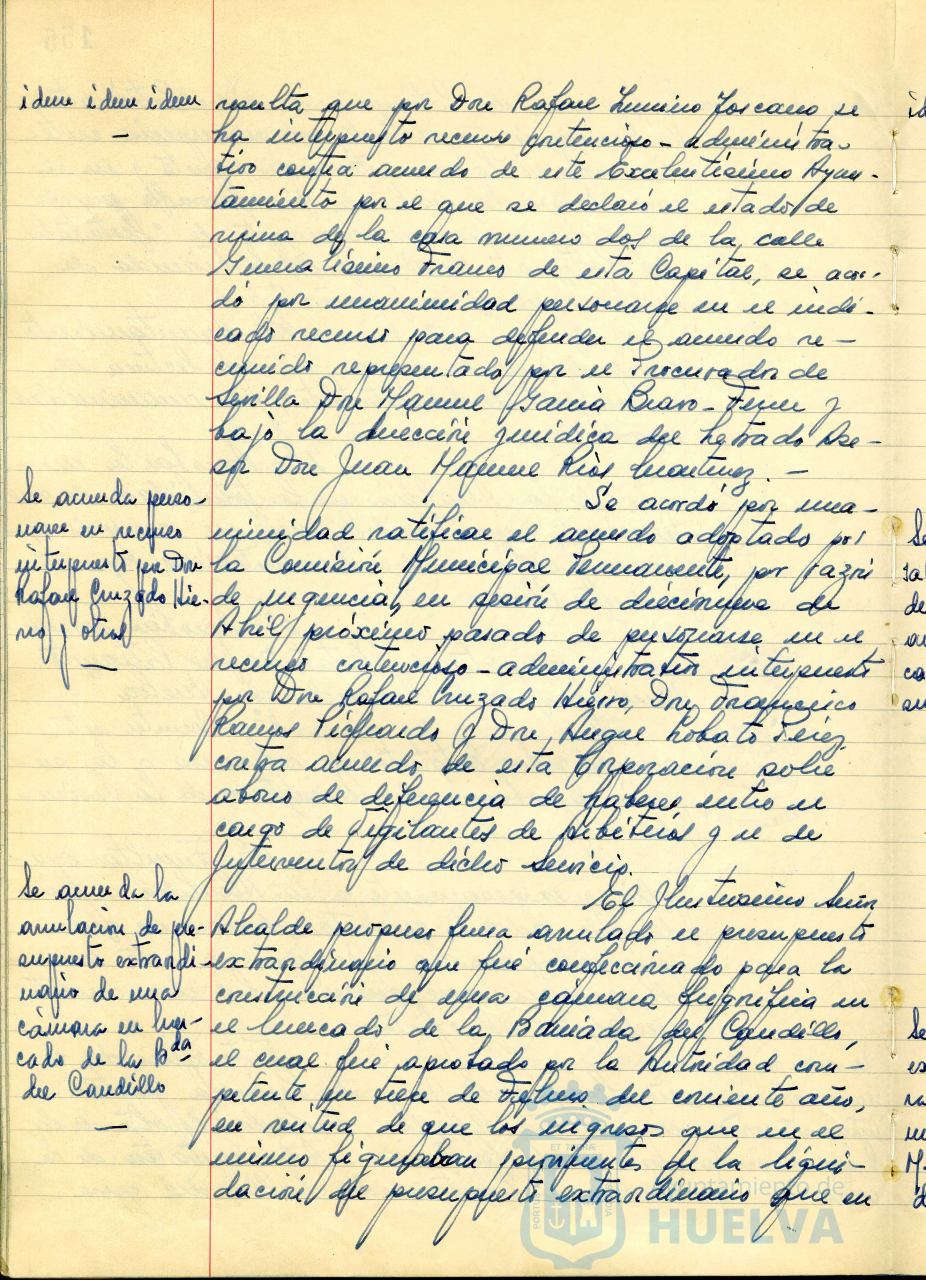 idem idem idem
—
resulta que por Don Rafael Toscano se
ha interpuesto recurso contencioso-administra-
tivo contra acuerdo de este Excelentísimo Ayun-
tamiento por el que se declaró el estado de
ruina de la casa numero dos de la calle
Generalísimo Franco de esta Capital, se acor-
dó por unanimidad personarse en el indi-
cado recurso para defender el acuerdo re-
currido representado por el Procurador de
Sevilla Don Manuel García Bravo-Ferrer y
bajo la dirección jurídica del Letrado Ase-
sor Don Juan Manuel Ríos Martinez. —
Se acuerda perso-
narse en recurso
interpuesto por Don
Rafael Cruzado Hie-
rro y otros
—
Se acordó por una-
nimidad ratificar el acuerdo adoptado por
la Comisión Municipal Permanente, por razón
de urgencia, en sesión de diecinueve de
Abril próximo pasado de personarse en el
recurso contencioso-administrativo interpuesto
por Don Rafael Cruzado Hierro, Don Francisco
Ramos Pichardo y Don Angel Lobato Pérez
contra acuerdo de esta Corporación sobre
abono de diferencia de haberes entre el
cargo de Vigilantes de Arbitrios y el de
Interventor de dicho Servicio.
Se acuerda la
anulación de pre-
supuesto extraordi-
nario de una
cámara en Mer-
cado de la Bda
del Caudillo
—
El Ilustrísimo Señor
Alcalde propuso fuera anulado el presupuesto
extraordinario que fué confeccionado para la
construcción de una cámara frigorífica en
el Mercado de la Barriada del Caudillo,
el cual fué aprobado por la Autoridad com-
petente en trece de Febrero del corriente año,
en virtud de que los ingresos que en el
mismo figuraban provinentes de la liqui-
dación del presupuesto extraordinario que en
Ayuntamiento de
HUELVA